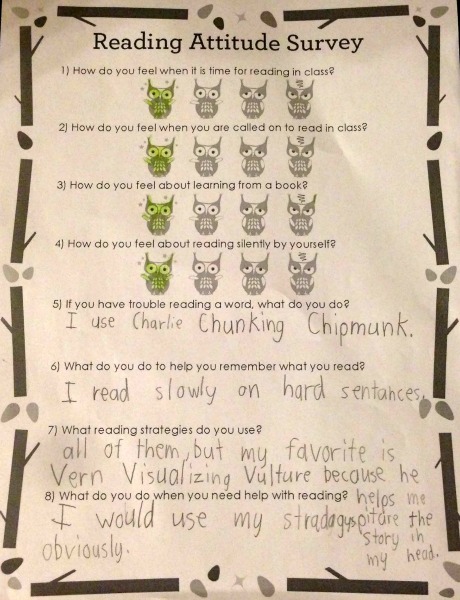 Reading Attitude Survey
1) How do you feel when it is time for reading in class?
2) How do you feel when you are called on to read in class?
3) How do you feel about learning from a book?
4) How do you feel about reading silently by yourself?
5) If you have trouble reading a word, what do you do?
I use Charlie Chunking Chipmunk.
6) What do you do to help you remember what you read?
I read slowly on hard sentances.
7) What reading strategies do you use?
all of them, but my favorite is
Vern Visualizing Vulture because he
helps me
piture the
story in
my head.
8) What do you do when you need help with reading?
I would use my stradagys
obviously.